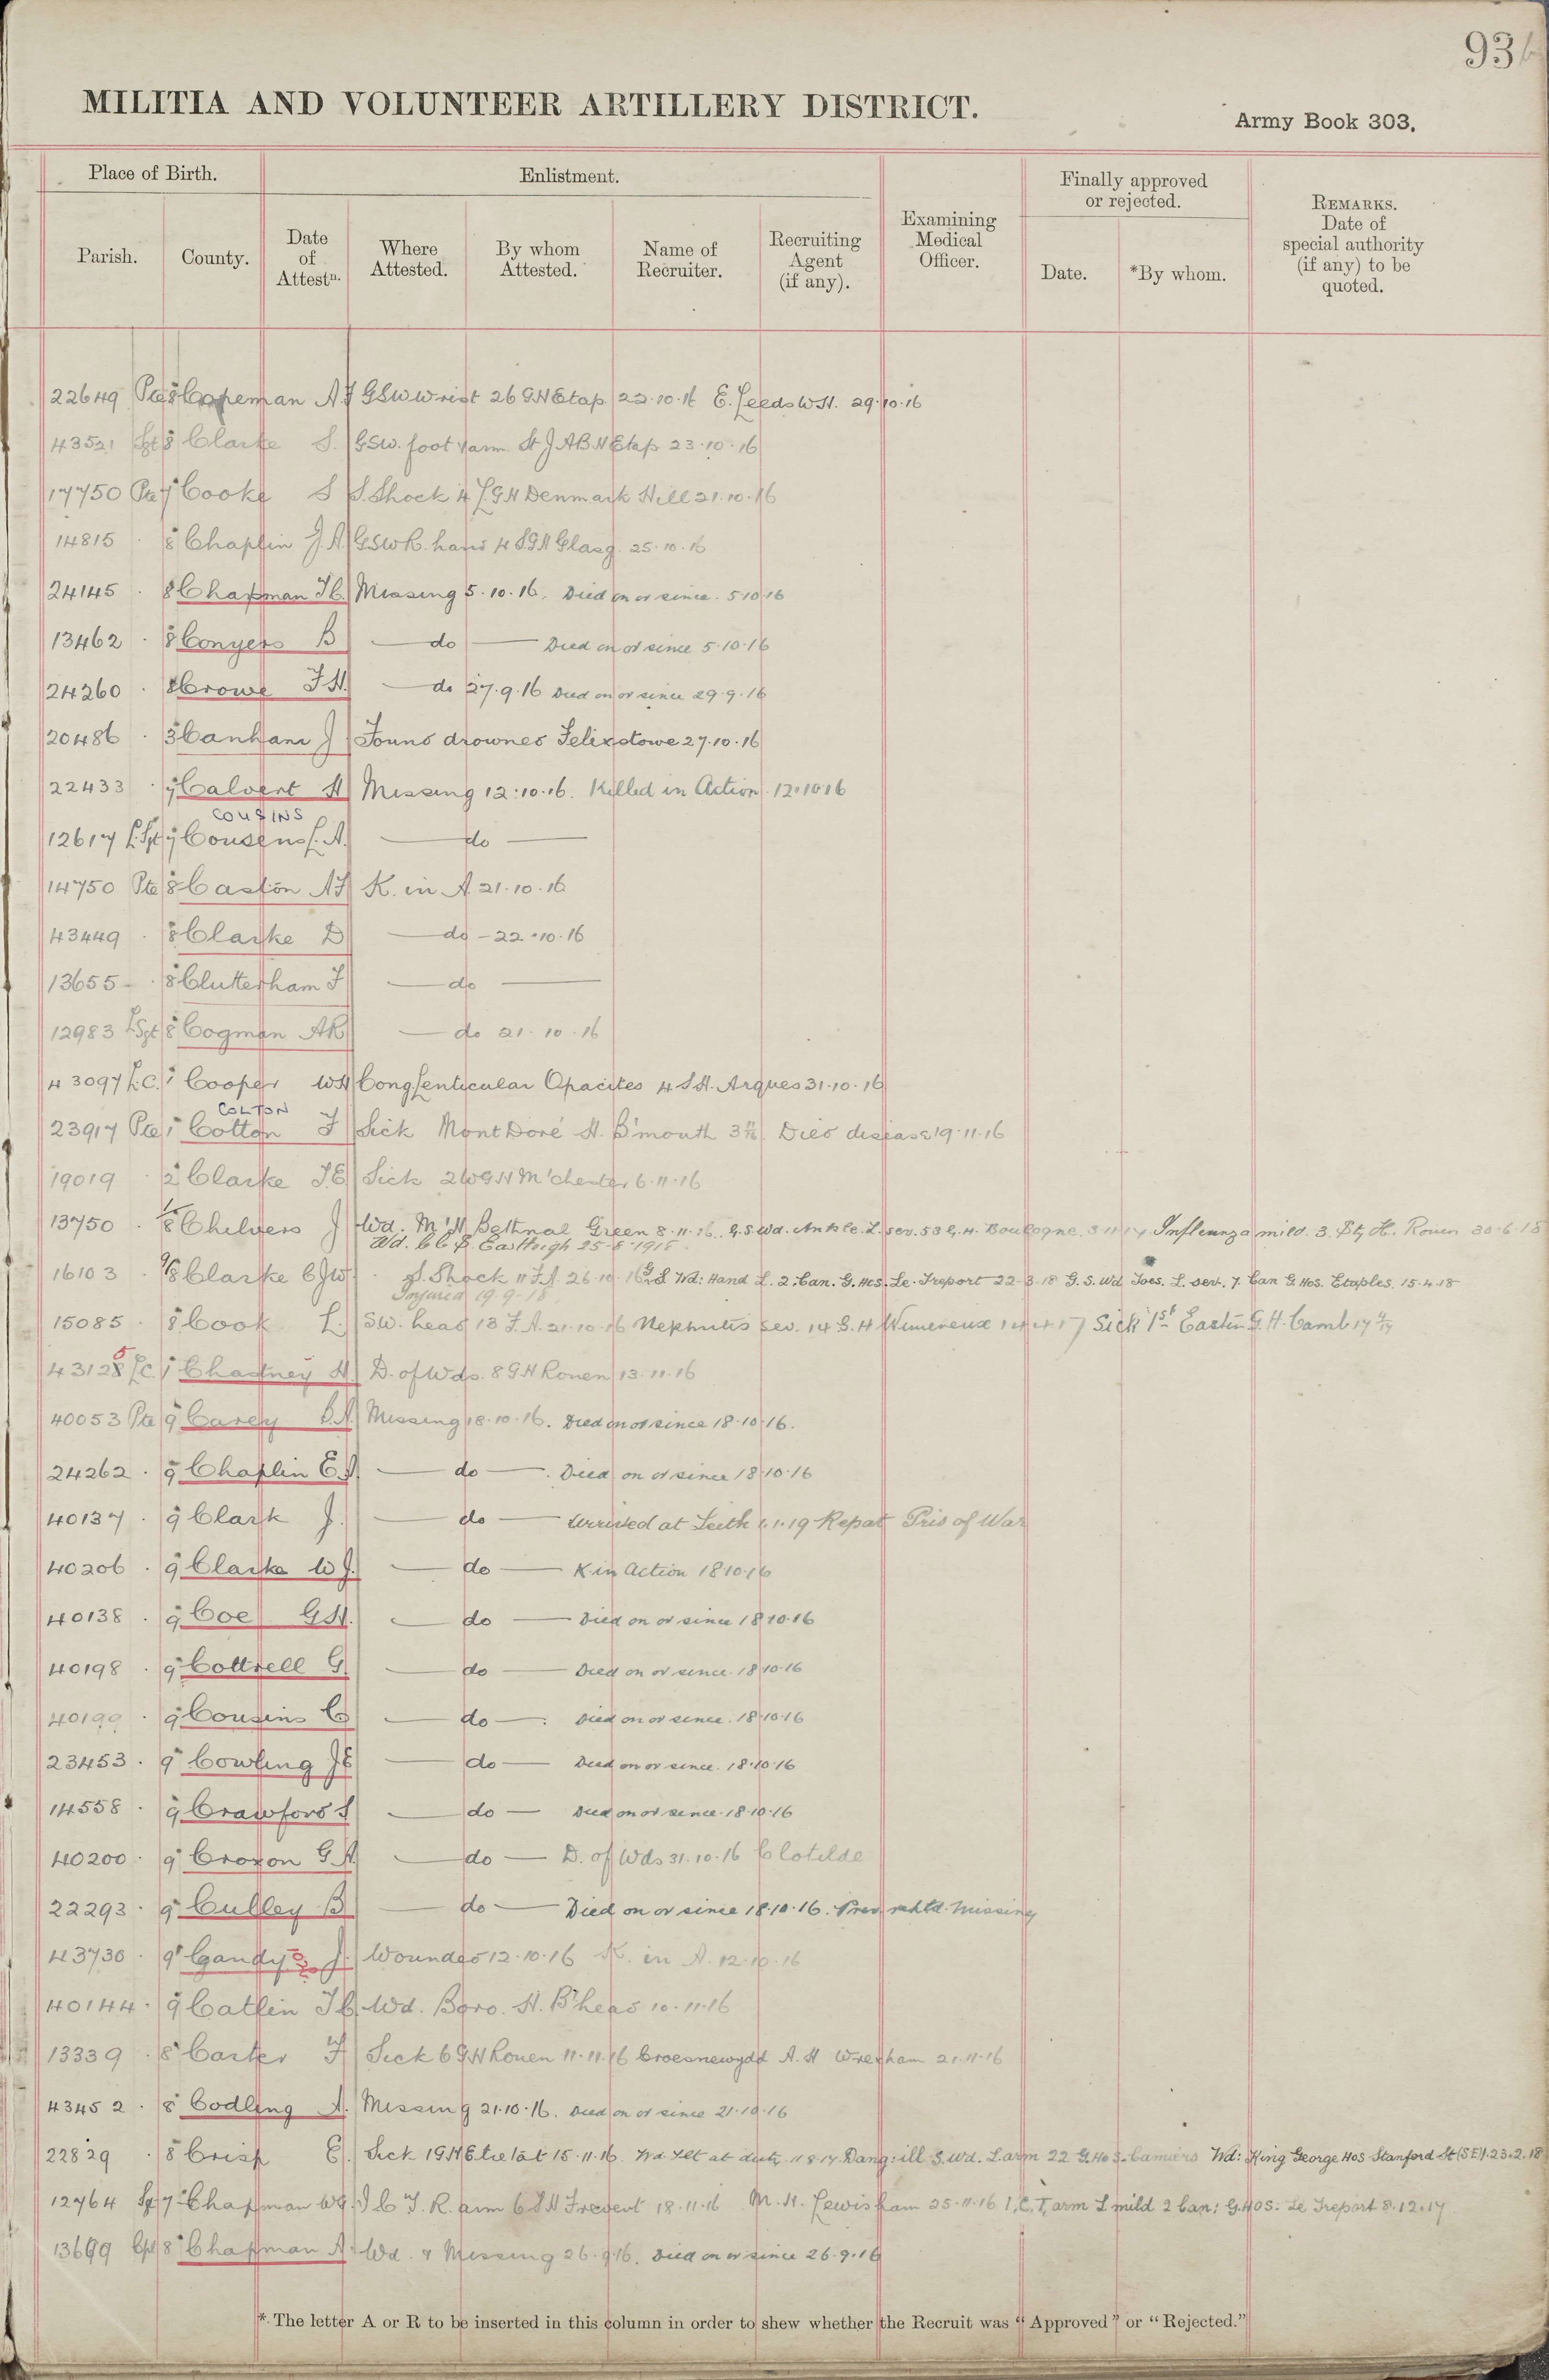 93
MILITIA AND VOLUNTEER ARTILLERY DISTRICT.
Army Book 303.
Place of Birth.
Enlistment.
Finally approved
or rejected.
Parish.
County.
Date
of
Attestn.
Where
Attested.
By whom
Attested.
Name of
Recruiter.
Recruiting
Agent
(if any).
Examining
Medical
Officer.
Date.
*By whom.
REMARKS.
Date of
special authority
(if any) to be
quoted.
22649 Pte 8 Copeman A J GSW wrist 26 GH Etap 22.10.16 E. Leeds W H. 29.10.16
43521 Sgt 8 Clarke S. GSW. foot & arm. St J AB H Etap 23.10.16
17750 Pte 7 Cooke S S. Shock 4 L G H Denmark Hill 21.10.16
14815 . 8 Chaplin J. A GSW R. hand 4 S G H Glasg. 25.10.16
24145 . 8 Chapman T C. Missing 5.10.16. Died on or since. 5 10 16
13462 . 8 Conyers B — do — Died on or since 5.10.16
24260 . 8 Crowe F. H. — do 27.9.16 Died on or since 29.9.16
20486 . 3 Canham J Found drowned Felixstowe 27.10.16
22433 . 7 Calvert H Missing 12.10.16. Killed in Action. 12.10.16
COUSINS
12617 L. Sgt 7 Cousens L. A. — do —
14750 Pte 8 Caston A J K. in A. 21.10.16
43449 . 8 Clarke D — do - 22.10.16
13655 - . 8 Clutterham F — do —
12983 L Sgt 8 Cogman A R — do 21.10.16
43097 L. C. 1 Cooper W H Cong Lenticular Opacites 4 S. H. Arques 31.10.16
COLTON
23917 Pte 1 Cotton F Sick Mont Doré H. B'mouth 3 11/16. Died disease 19.11.16
19019 . 2 Clarke J. E Sick 2 W G H M'chester 6.11.16
13750 . 1/8 Chilvers J Wd. M'H Bethnal Green 8.11.16. G.S. Wd. Ankle. L. sev. 53 G. H. Boulogne. 3 11 17 Influenza mild. 3. Sty H. Rouen 30.6.18
Wd. C C S. Eastleigh 25-8-1918.
16103 . 9/8 Clarke C J W . S. Shock 11 F A 26.10.16 G. S. Wd: Hand L. 2. Can. G. Hos. Le. Treport 22.3.18 G. S. Wd Toes. L. sev. 7. Can G Hos. Etaples. 15.4.18
Injured 19-9-18
15085 . 8 Cook L. SW. head 13 F. A. 21.10.16 Nephritis sev. 14 G. H Wimereux 14.4.17 Sick 1st Eastn G. H. Camb 17
43128 L. C. 1 Chastney H. D. of Wds. 8 G H Rouen 13.11.16
40053 Pte 9 Carey Missing 18.10.16. Died on or since 18.10.16.
24262 . 9 Chaplin E. — do — . Died on or since 18.10.16
40137 . 9 Clark J. — do — Arrived at Leith 1.1.19 Repat Pris of War
40206 . 9 Clarke W J. — do — K in Action 18.10.16
40138 . 9 Coe G H. — do — Died on or since 18.10.16
40198 . 9 Cottrell G — do — Died on or since. 18.10.16
40199 . 9 Cousins C — do — . Died on or since. 18.10.16
23453 . 9 Cowling J E — do — Died on or since. 18.10.16
14558 . 9 Crawford S — do — Died on or since. 18.10.16
40200 . 9 Croxon G. A — do — D. of Wds 31.10.16 Clotilde
22293 . 9 Culley B — do — Died on or since 18.10.16. Prev. repted. Missing
43730 . 9 Gandy J. Wounded 12.10.16 K. in A. 12.10.16
40144 . 9 Catlin T C. Wd. Boro. H. B'head 10.11.16
13339 . 8 Carter F Sick 6 G H Rouen 11.11.16 Croesnewydd A. H Wrexham 21.11.16
43452 . 8 Codling A. Missing 21.10.16. Died on or since 21.10.16
22829 . 8 Crisp E. Sick 1 G H Etretat 15.11.16. Wd. Yet at duty, 11 8 17 Dang: ill S. Wd. L. arm 22 G. Hos. Camiers Wd: King George Hos Stanford St (SE) 1. 23.2.18
12764 Sgt 7 Chapman W G. I C T. R. arm 6 S H Frevent 18.11.16 M. H. Lewisham 25.11.16 I. C. T. arm L mild 2 Can: G. Hos. Le Treport 8.12.17
13699 Cpl 8 Chapman A. Wd. & Missing 26.9.16. Died on or since 26.9.16
*. The letter A or R to be inserted in this column in order to shew whether the Recruit was “ Approved ” or “ Rejected.”